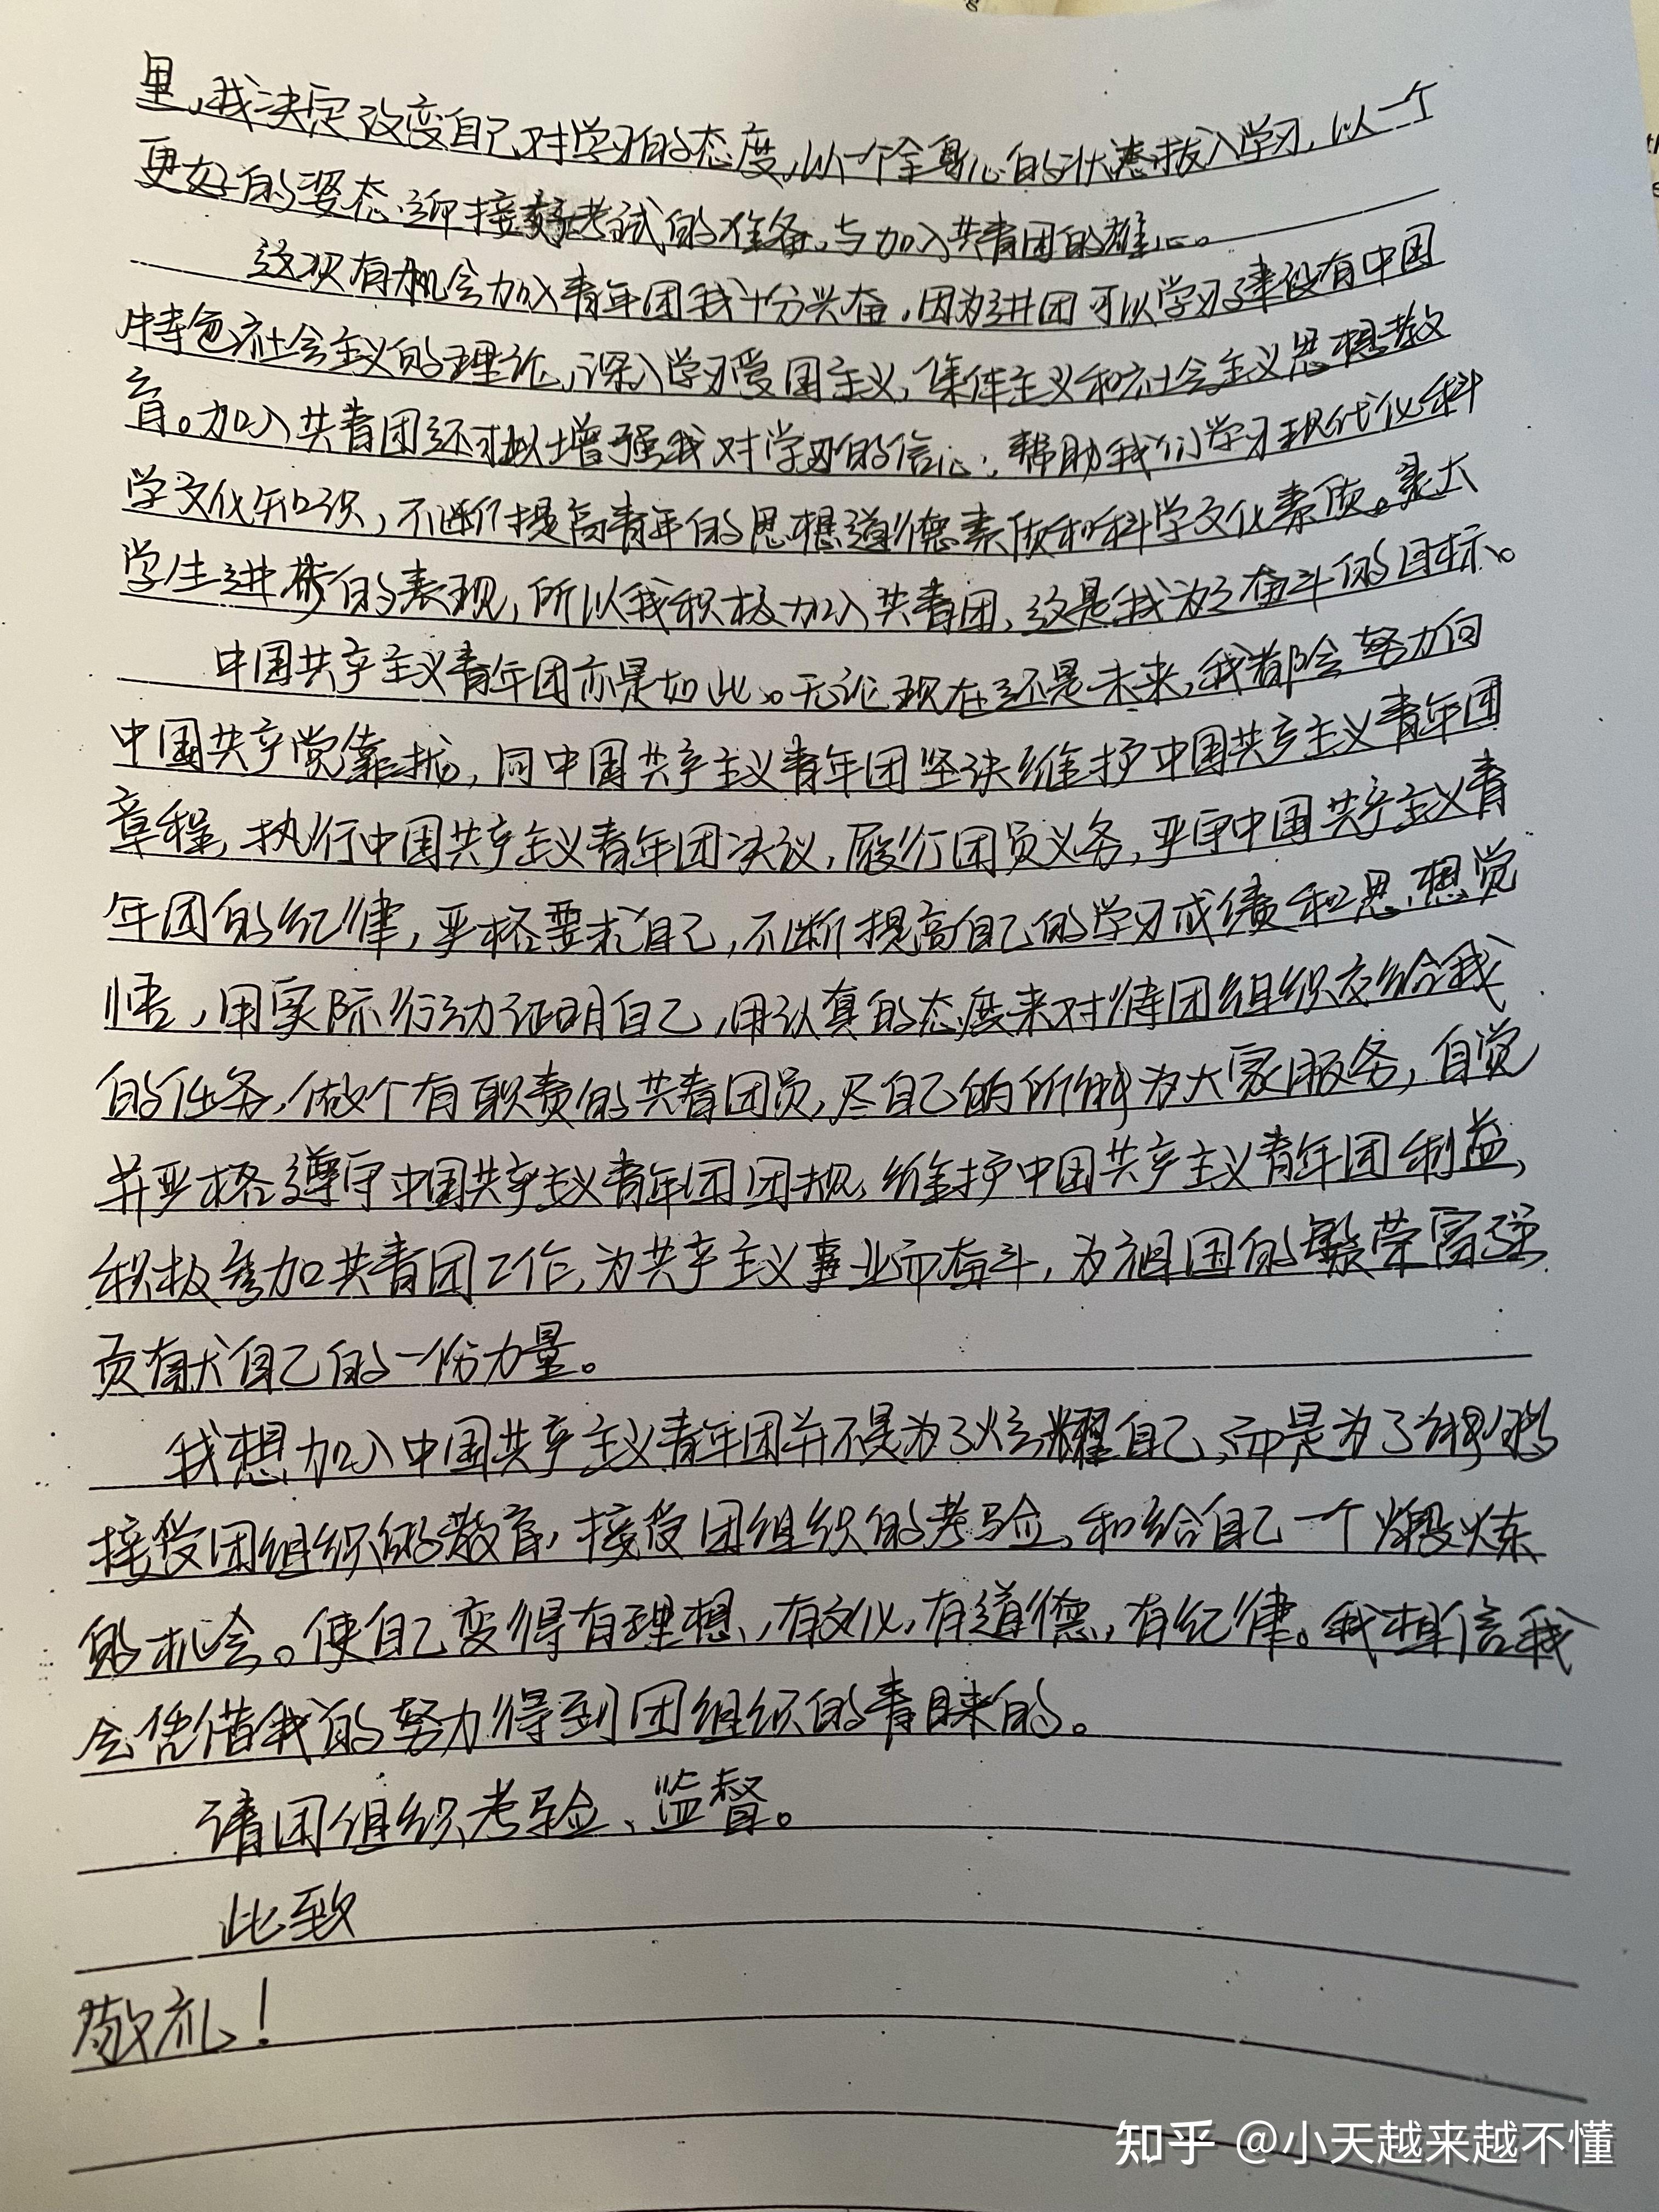 里,我决定改变自己对学习的态度,以一个全身心的状态投入学习,以一个
更好的姿态迎接好考试的准备,与加入共青团的雄心。
这次有机会加入青年团我十分兴奋,因为进团可以学习建设有中国
特色社会主义的理论,深入学习爱国主义,集体主义和社会主义思想教
育。加入共青团还可以增强我对学习的信心,帮助我们学习现代化科
学文化知识,不断提高青年的思想道德素质和科学文化素质。是大
学生进步的表现,所以我积极加入共青团,这是我为之奋斗的目标。
中国共产主义青年团亦是如此。无论现在还是未来,我都会努力向
中国共产党靠拢,同中国共产主义青年团坚决维护中国共产主义青年团
章程,执行中国共产主义青年团决议,履行团员义务,严守中国共产主义青
年团的纪律,严格要求自己,不断提高自己的学习成绩和思想觉
悟,用实际行动证明自己,用认真的态度来对待团组织交给我
的任务,做个有职责的共青团员,尽自己的所能为大家服务,自觉
并严格遵守中国共产主义青年团团规,维护中国共产主义青年团利益,
积极参加共青团工作,为共产主义事业而奋斗,为祖国的繁荣富强
贡献自己的一份力量。
我想加入中国共产主义青年团并不是为了炫耀自己,而是为了
接受团组织的教育,接受团组织的考验,和给自己一个煅炼
的机会。使自己变得有理想,有文化,有道德,有纪律。我相信我
会凭借我的努力得到团组织的青睐的。
请团组织考验、监督。
此致
敬礼!
知乎 @小天越来越不懂